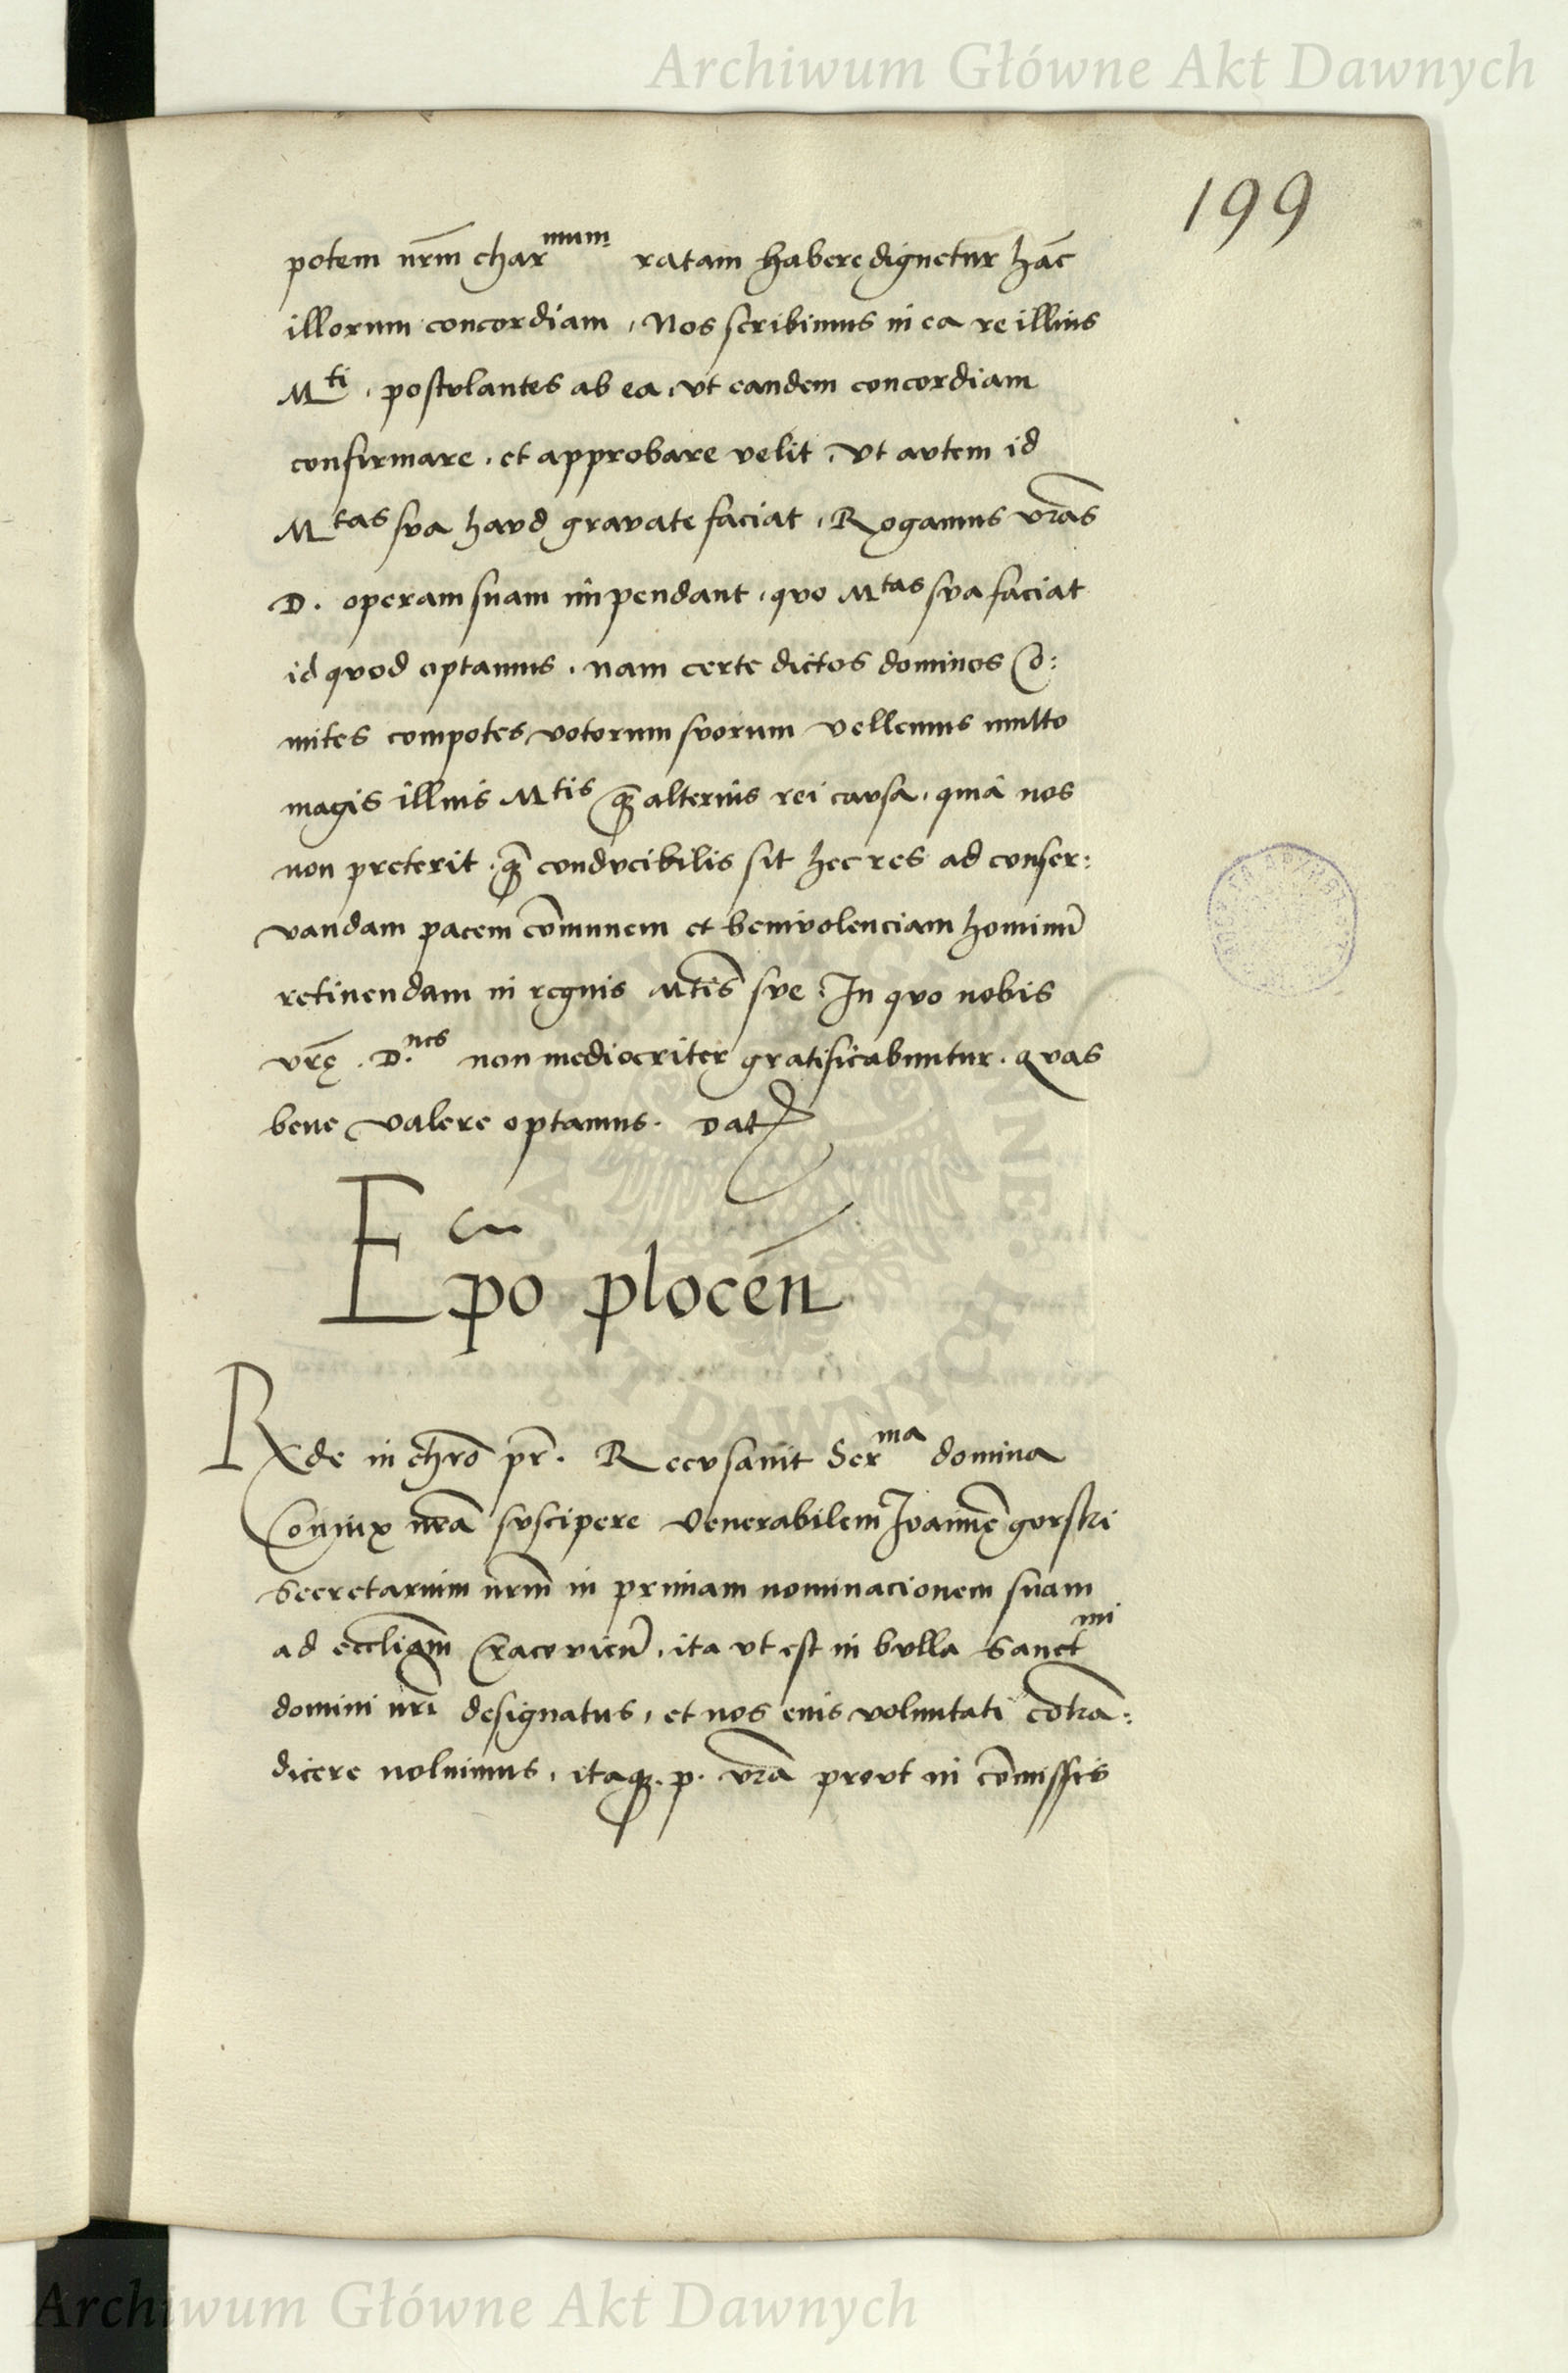 Archiwum Główne Akt Dawnych
199
potem nr̄m char^mum ratam habere dignetur hāc
illorum concordiam, Nos scribimus in ea re illius
M^ti, postvlantes ab ea, vt eandem concordiam
confirmare, et approbare velit, Vt avtem id
M^tas sva havd gravate faciat, Rogamus vr̄as
D. operam suam impendant, qvo M^tas sva faciat
id qvod optamus, nam certe dictos dominos Co:
mites compotes votorum svorum vellemus multo
magis illius M^tis qꝫ̄ alterius rei cavsa, quia nos
non preterit, qꝫ̄ condvcibilis sit hec res ad conser:
vandam pacem cōmunem et benivolenciam hominū
retinendam in regnis Mtīs sve: In qvo nobis
vr̄ę D.^nes non mediocriter gratificabuntur. qvas
bene valere optamus. Dat
Epo plocēn
Rxde in chr̄o pr̄. Recvsavit Ser^ma domina
Coniux nr̄a svscipere Venerabilem Joannē gorski
Secretarium nr̄m in primam nominacionem suam
ad eccliam̄ Cracovien̄, ita vt est in bvlla Sanct^mi
domini nr̄i designatus, et nos eius voluntati cōtra:
dicere noluimus, itaqꝫ. p. vr̄a provt in cōmissis
Archiwum Główne Akt Dawnych